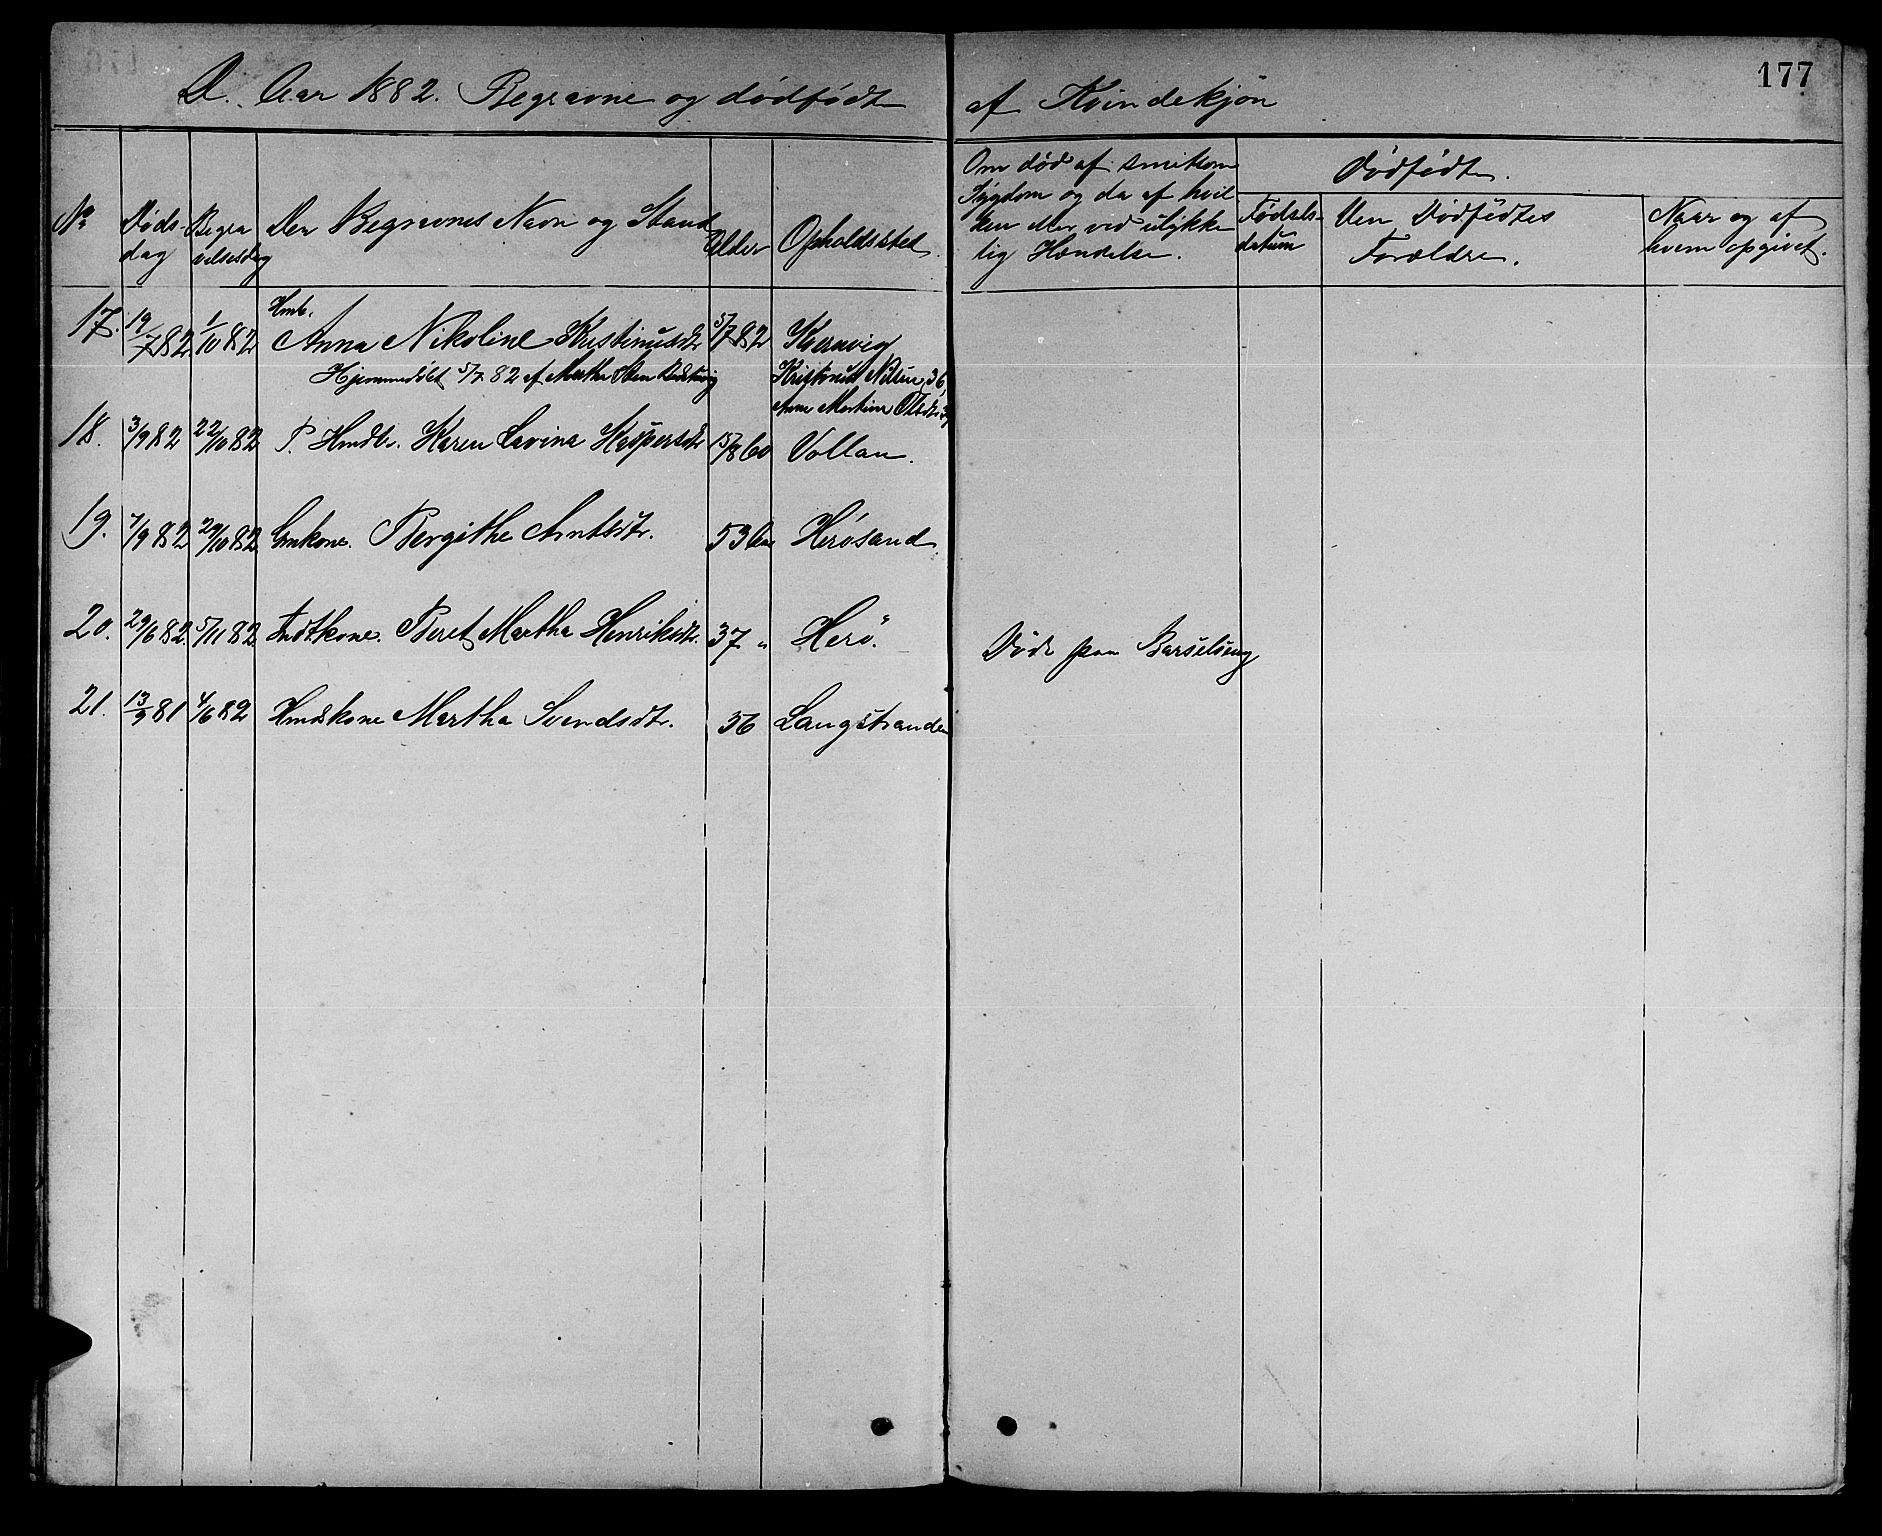 177
D. Aar 1882. Begravne og dødfødte af Kvindekjøn
No
Døds-
dag
Begra
velsesdag
Den Begravnes Navn og Stand
Alder
Opholdssted.
Om død af smitsom
Sygdom og da af hvil
ken eller ved ulykke
lig Hændelse.
Dødfødte.
Fødsels-
datum
Den Dødfødtes
Forældre.
Naar og af
hvem opgivet.
17. 19/7 82 1/10 82 Hmb. Anna Nikoline Kristinusdtr 5/7 82
Hjemmedøbt 5/7 82 af Martha
Kristinus Nilsen, 36,
Anne Martine Olsdtr
18. 3/9 82 22/10 82 P. Hmdbr. Karen Lavina Kaspersdtr 15/8 60 Vollan.
19. 7/9 82 29/10 82 Gmkone. Bergithe Arntsdtr. 53 Herøsand
20. 29/6 82. 5/11 82. Indkone. Beret Martha Henriksdtr. 37 " Herø. Døde paa Barselseng
21. 13/9 81 4/6 82 Hmdskone Martha Svendsdtr. 56 Langstranden